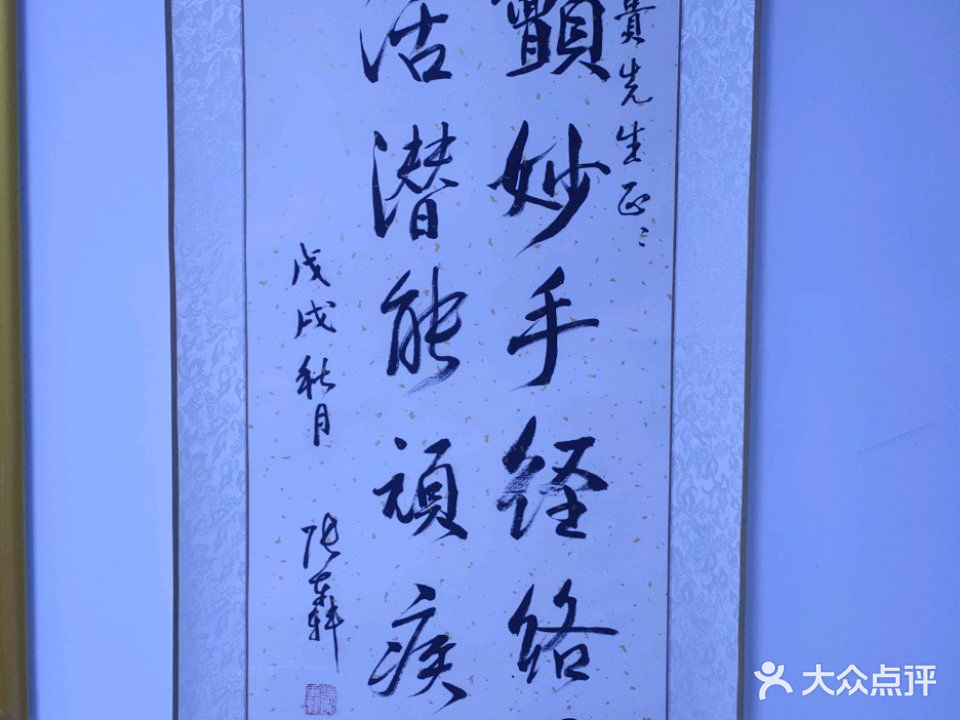 贵先生正之
颤妙手经络
活潜能顽疾
戊戌秋月
张
大众点评